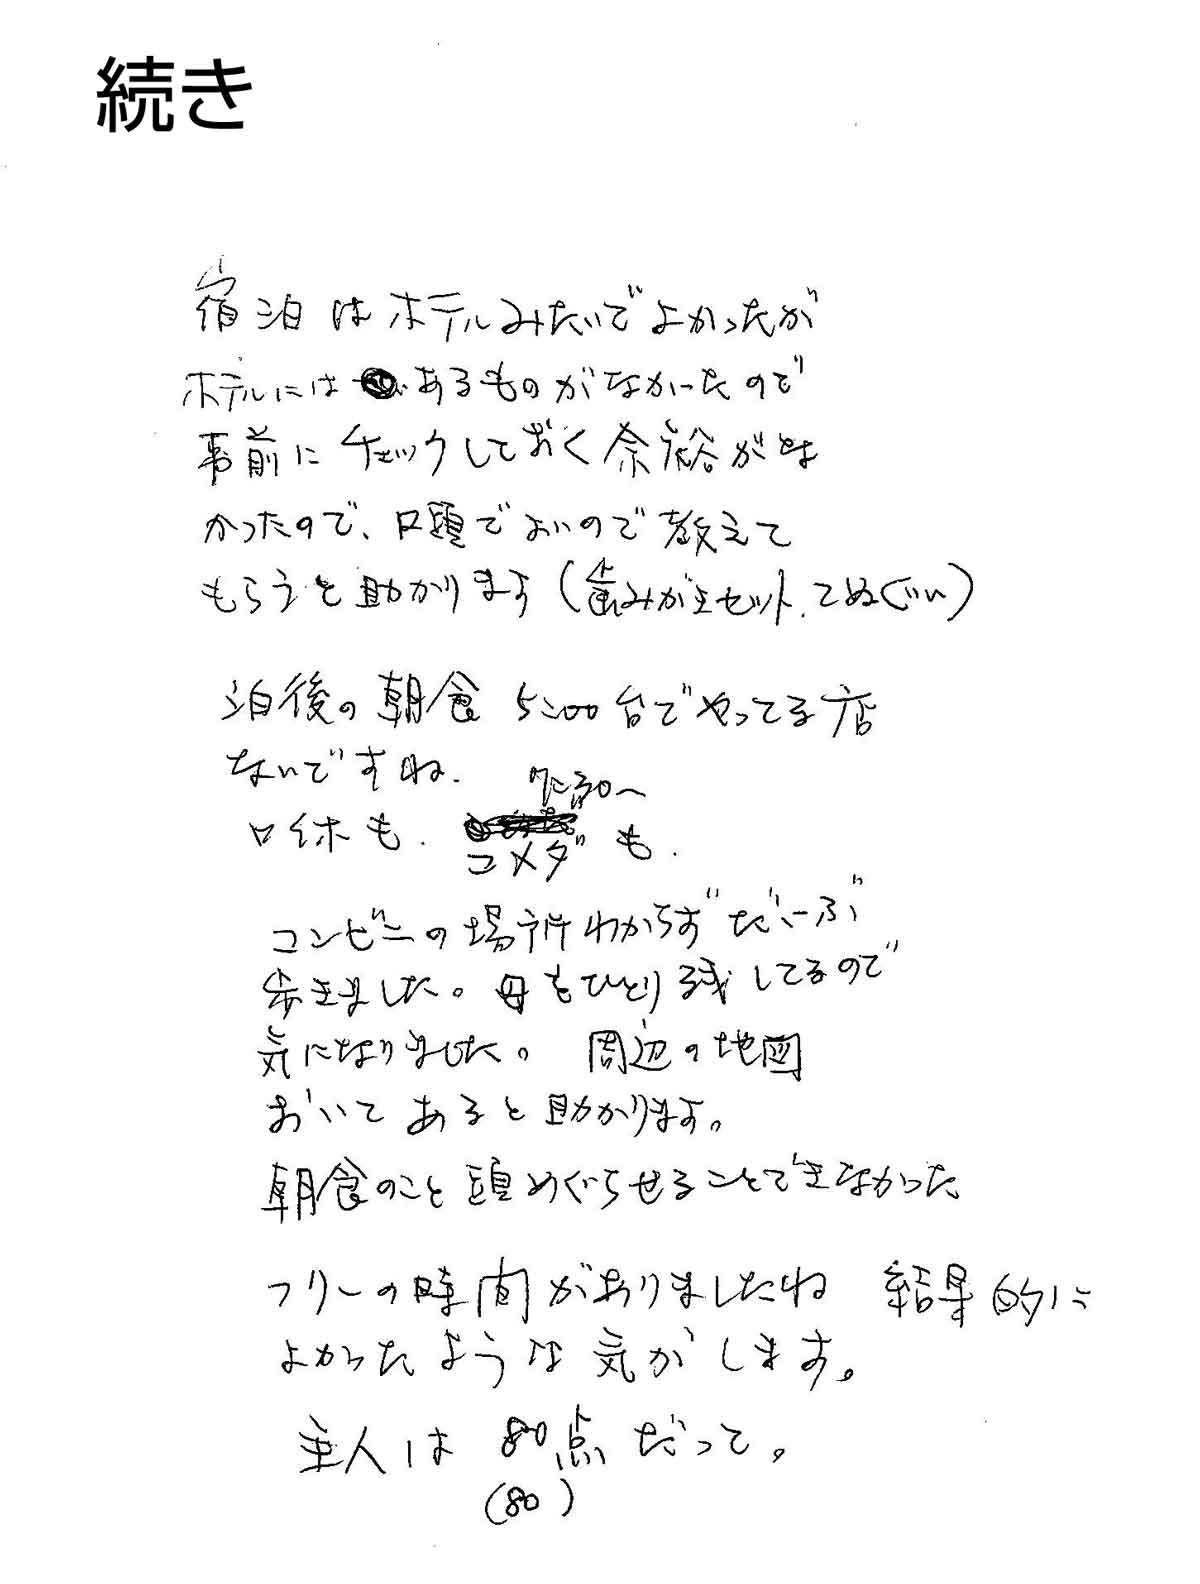 続き
宿泊はホテルみたいでよかったが
ホテルにはあるものがなかったので
事前にチェックしておく余裕がな
かったので、口頭でよいので教えて
もらうと助かります(歯みがきセット、てぬぐい)
泊後の朝食 5:00台でやってる店
ないですね.
7:30〜
口休も. コメダも.
コンビニの場所わからずだいーぶ
歩きました。母もひとり残してるので
気になりました。 周辺の地図
おいてあると助かります。
朝食のこと頭めぐらせることできなかった
フリーの時間がありましたね 結果的に
よかったような気がします。
主人は 80点だって。
(80)